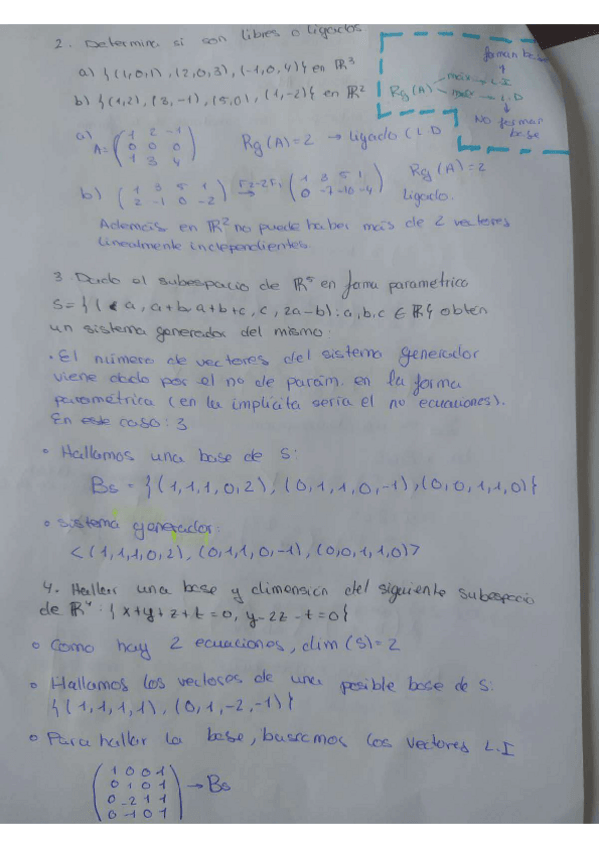 2. Determina si son libres o ligados
a) {(1,0,1), (2,0,3), (-1,0,4)} en ℝ³
b) {(1,2), (3,-1), (5,0), (1,-2)} en ℝ²
forman base
↑
Rg(A) máx → L.I
máx → L.D
↓
NO forman
base
a) A = (1 2 -1 / 0 0 0 / 1 3 4) Rg(A) = 2 → ligado (L D
b) (1 3 5 1 / 2 -1 0 -2) F2-2F1 → (1 3 5 1 / 0 -7 -10 -4) Rg(A) = 2
Ligado.
Además en ℝ² no puede haber más de 2 vectores
linealmente independientes.
3. Dado el subespacio de ℝ⁵ en forma parametrico
S = {(a, a+b, a+b+c, c, 2a-b): a, b, c ∈ ℝ} obten
un sistema generador del mismo:
· El número de vectores del sistema generador
viene dado por el no de parám. en la forma
paramétrica (en la implícita sería el no ecuaciones).
En este caso: 3
• Hallamos una base de S:
Bs = {(1,1,1,0,2), (0,1,1,0,-1), (0,0,1,1,0)}
• Sistema generador:
<(1,1,1,0,2), (0,1,1,0,-1), (0,0,1,1,0)>
4. Hallar una base y dimensión del siguiente subespacio
de ℝ⁴: {x+y+z+t=0, y-2z-t=0}
• Como hay 2 ecuaciones, dim(S)=2
• Hallamos los vectores de una posible base de S:
{(1,1,1,1), (0,1,-2,-1)}
• Para hallar la base, buscamos los vectores L.I
(1 0 0 1 / 0 1 0 1 / 0 -2 1 1 / 0 -1 0 1) → Bs